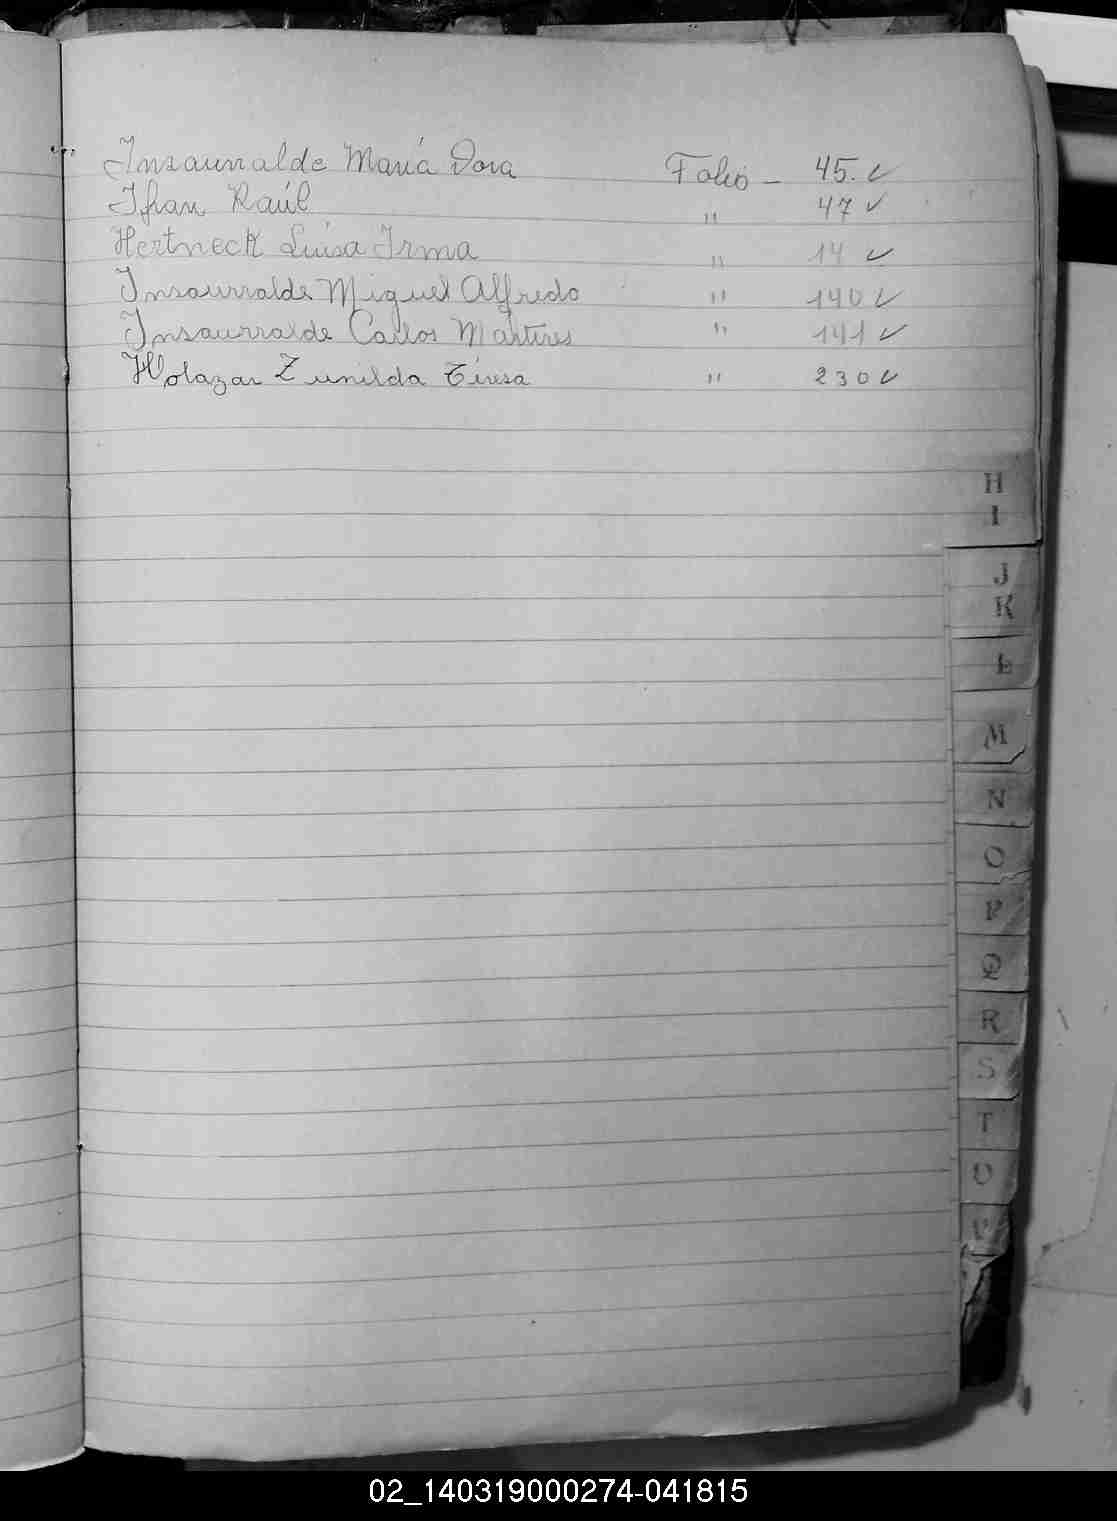 Insaurralde María Dora Folio - 45. ✓
Ifran Raúl " 47 ✓
Hertneck Luisa Irma " 14 ✓
Insaurralde Miguel Alfredo " 140 ✓
Insaurralde Carlos Martires " 141 ✓
Holazar Zunilda Teresa " 230 ✓
H
I
J
K
L
M
N
O
P
Q
R
S
T
U
V
02_140319000274-041815